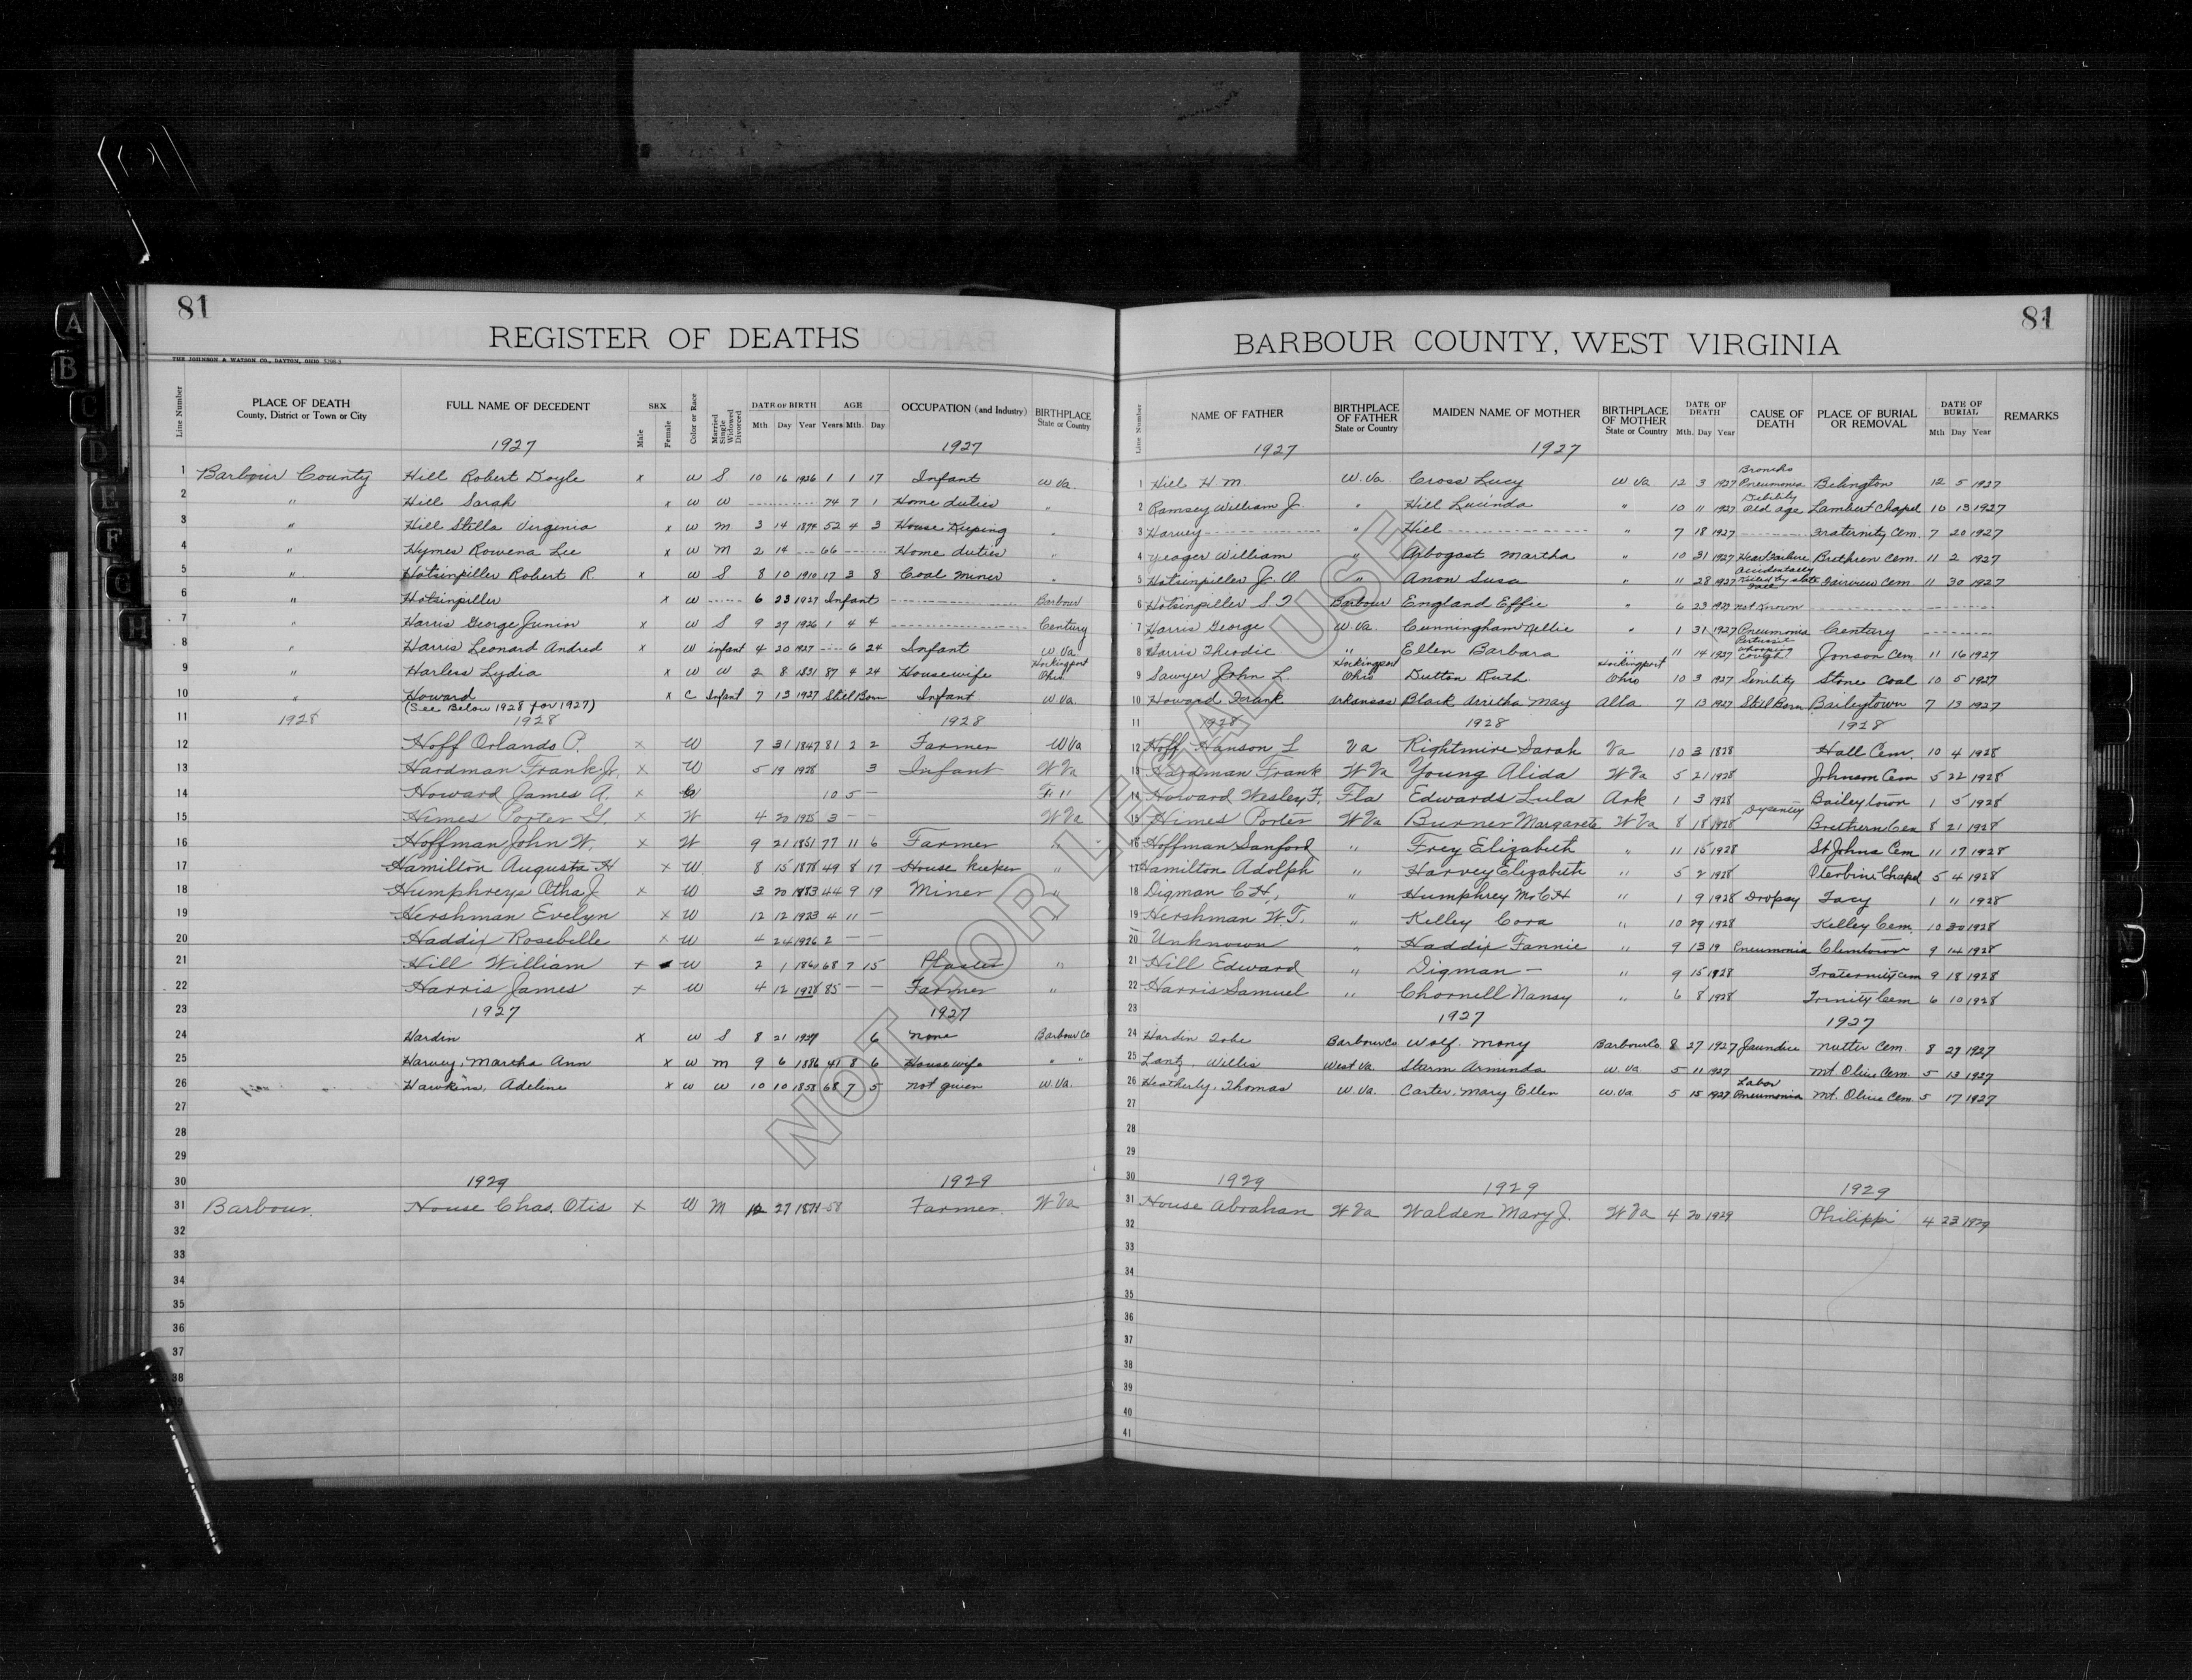 81
81
REGISTER OF DEATHS
BARBOUR COUNTY, WEST VIRGINIA
THE JOHNSON & WATSON CO., DAYTON, OHIO
Line Number PLACE OF DEATH County, District or Town or City FULL NAME OF DECEDENT SEX Male Female Color or Race Married Single Widowed Divorced DATE OF BIRTH Mth Day Year AGE Years Mth. Day OCCUPATION (and Industry) BIRTHPLACE State or Country
Line Number NAME OF FATHER BIRTHPLACE OF FATHER State or Country MAIDEN NAME OF MOTHER BIRTHPLACE OF MOTHER State or Country DATE OF DEATH Mth. Day Year CAUSE OF DEATH PLACE OF BURIAL OR REMOVAL DATE OF BURIAL Mth Day Year REMARKS
1927 1927 1927 1927
1 Barbour County Hill Robert Doyle x W S 10 16 1926 1 1 17 Infant W Va 1 Hill H. M. W. Va. Cross Lucy W Va 12 3 1927 Broncho Pneumonia Belington 12 5 1927
2 " Hill Sarah x W W 74 7 1 Home duties " 2 Ramsey William J. " Hill Lucinda " 10 11 1927 Debility Old age Lambert Chapel 10 13 1927
3 " Hill Stilla Virginia x W M 3 14 1874 52 4 3 House Keeping " 3 Harvey " Hill 7 18 1927 Fraternity Cem. 7 20 1927
4 " Hymes Rowena Lee x W M 2 14 66 Home duties " 4 Yeager William " Arbogast Martha " 10 31 1927 Heart Failure Brethren Cem. 11 2 1927
5 " Hotsinpiller Robert R. x W S 8 10 1910 17 3 8 Coal Miner " 5 Hotsinpiller J. O. " Anon Susa " 11 28 1927 Accidentally Killed by slate Fall Fairview Cem. 11 30 1927
6 " Hotsinpiller x W 6 23 1927 Infant Barbour 6 Hotsinpiller S. Barbour England Effie " 6 23 1927 not Known
7 " Harris George Junior x W S 9 27 1926 1 4 4 Century 7 Harris George W. Va. Cunningham Nellie " 1 31 1927 Pneumonia Century
8 " Harris Leonard Andred x W infant 4 20 1927 6 24 Infant W. Va. 8 Harris " Ellen Barbara " 11 14 1927 Whooping Cough Jonson Cem 11 16 1927
9 " Harless Lydia x W W 2 8 1831 87 4 24 Housewife Hockingport Ohio 9 Sawyer John L. Hockingport Ohio Dutton Ruth Hockingport Ohio 10 3 1927 Senility Stone Coal 10 5 1927
10 " Howard x C Infant 7 13 1927 Still Born Infant W Va 10 Howard Frank Arkansas Black Arritha May Alla 7 13 1927 Still Born Baileytown 7 13 1927
(See Below 1928 for 1927)
11 1928 1928 1928 11 1928 1928 1928
12 Hoff Orlando P. x W 7 31 1847 81 2 2 Farmer W Va 12 Hoff Hanson L Va Rightmire Sarah Va 10 3 1828 Hall Cem. 10 4 1928
13 Hardman Frank Jr. x W 5 19 1928 3 Infant W Va 13 Hardman Frank W Va Young Alida W Va 5 21 1928 Johnson Cem 5 22 1928
14 Howard James A. x 10 5 — 14 Howard Wesley F. Fla Edwards Lula Ark 1 3 1928 Baileytown 1 5 1928
15 Himes Porter G. x W 4 20 1925 3 — — W Va 15 Himes Porter W Va Burner Margarete W Va 8 18 1928 Dysentery Brethern Cem 8 21 1928
16 Hoffman John W. x W 9 21 1851 77 11 6 Farmer " 16 Hoffman Sanford " Frey Elizabeth " 11 15 1928 St Johns Cem 11 17 1928
17 Hamilton Augusta H x W 8 15 1878 49 8 17 House keeper " 17 Hamilton Adolph " Harvey Elizabeth " 5 2 1928 Oterbine Chapel 5 4 1928
18 Humphreys Otha J x W 3 20 1883 44 9 19 Miner " 18 Digman C. H., " Humphrey Mr. C H " 1 9 1928 Dropsy Tacy 1 11 1928
19 Hershman Evelyn x W 12 12 1923 4 11 — " 19 Hershman W. T. " Kelley Cora " 10 29 1928 Kelley Cem. 10 30 1928
20 Haddix Rosebelle x W 4 24 1926 2 — — 20 Unknown " Haddix Fannie " 9 13 19 Pneumonia Clemtown 9 14 1928
21 Hill William x W 2 1 1860 68 7 15 Plaster " 21 Hill Edward " Digman — " 9 15 1928 Fraternity Cem 9 18 1928
22 Harris James x W 4 12 1928 85 — — Farmer " 22 Harris Samuel " Chornell Nansy " 6 8 1928 Trinity Cem 6 10 1928
23 1927 1927 23 1927 1927
24 Hardin x W S 8 21 1927 6 none Barbour Co 24 Hardin Tobe Barbour Co Wolf. Mony Barbour Co. 8 27 1927 Jaundice Nutter Cem. 8 29 1927
25 Harvey, Martha Ann x W M 9 6 1886 41 8 6 Housewife " " 25 Lantz, Willis West Va. Starm Arminda W. Va 5 11 1927 Mt Olive Cem. 5 13 1927
26 Hawkins, Adeline x W W 10 10 1858 68 7 5 not given W. Va. 26 Heatherly, Thomas W. Va. Carter, Mary Ellen W. Va 5 15 1927 Labor Pneumonia Mt. Olive Cem. 5 17 1927
27 27
28 28
29 29
30 1929 1929 30 1929 1929 1929
31 Barbour. House Chas. Otis x W M 12 27 1871 58 Farmer. W Va 31 House Abrahan W Va Walden Mary J. W Va 4 20 1929 Philippi 4 23 1929
32 32
33 33
34 34
35 35
36 36
37 37
38 38
39
40
41
A
B
C
D
E
F
G
H
N
NOT FOR LEGAL USE